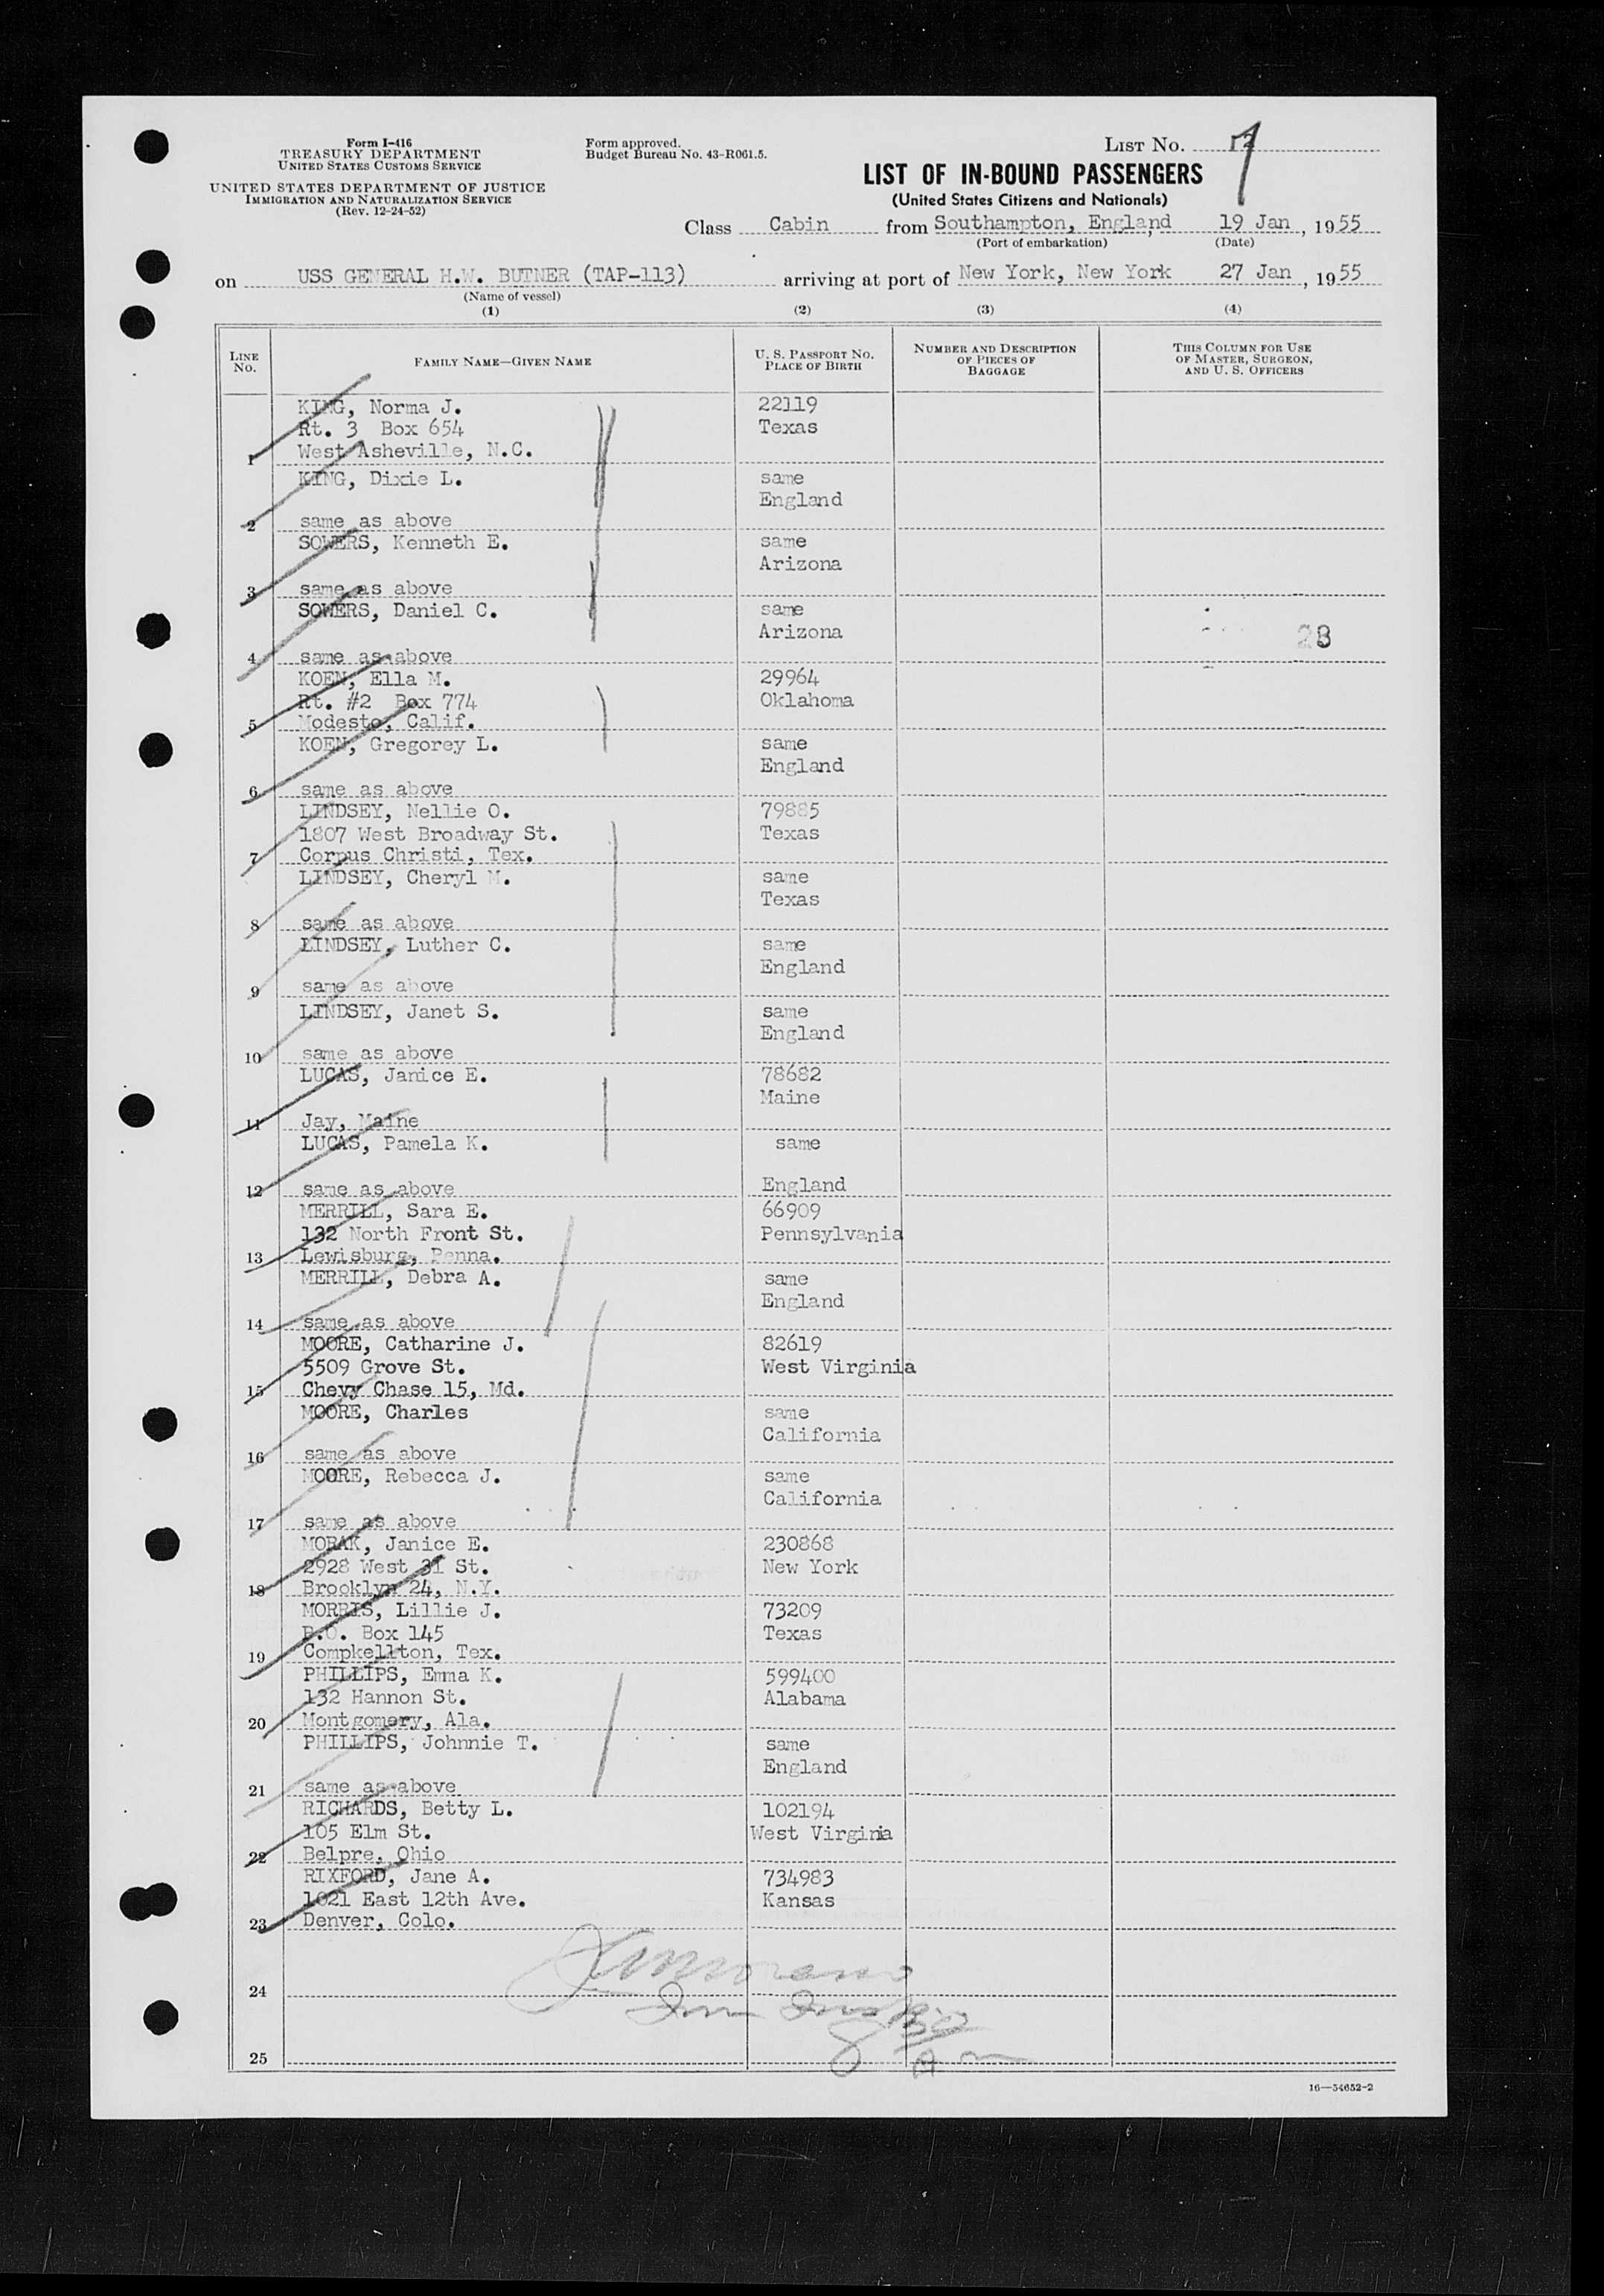 Form I-416
TREASURY DEPARTMENT
UNITED STATES CUSTOMS SERVICE
UNITED STATES DEPARTMENT OF JUSTICE
IMMIGRATION AND NATURALIZATION SERVICE
(Rev. 12-24-52)
Form approved.
Budget Bureau No. 43-R061.5.
LIST NO. 7
LIST OF IN-BOUND PASSENGERS
(United States Citizens and Nationals)
Class Cabin from Southampton, England 19 Jan, 1955
(Port of embarkation) (Date)
on USS GENERAL H.W. BUTNER (TAP-113) arriving at port of New York, New York 27 Jan, 1955
(Name of vessel)
(1) (2) (3) (4)
LINE NO. FAMILY NAME—GIVEN NAME U. S. PASSPORT NO. PLACE OF BIRTH NUMBER AND DESCRIPTION OF PIECES OF BAGGAGE THIS COLUMN FOR USE OF MASTER, SURGEON, AND U. S. OFFICERS
KING, Norma J. 22119
Rt. 3 Box 654 Texas
1 West Asheville, N.C.
KING, Dixie L. same
England
2 same as above
SOWERS, Kenneth E. same
Arizona
3 same as above
SOWERS, Daniel C. same
Arizona 28
4 same as above
KOEN, Ella M. 29964
Rt. #2 Box 774 Oklahoma
5 Modesto, Calif.
KOEN, Gregorey L. same
England
6 same as above
LINDSEY, Nellie O. 79885
1807 West Broadway St. Texas
7 Corpus Christi, Tex.
LINDSEY, Cheryl M. same
Texas
8 same as above
LINDSEY, Luther C. same
England
9 same as above
LINDSEY, Janet S. same
England
10 same as above
LUCAS, Janice E. 78682
Maine
11 Jay, Maine
LUCAS, Pamela K. same
12 same as above England
MERRILL, Sara E. 66909
132 North Front St. Pennsylvania
13 Lewisburg, Penna.
MERRILL, Debra A. same
England
14 same as above
MOORE, Catharine J. 82619
5509 Grove St. West Virginia
15 Chevy Chase 15, Md.
MOORE, Charles same
California
16 same as above
MOORE, Rebecca J. same
California
17 same as above
MORAK, Janice E. 230868
2928 West 31 St. New York
18 Brooklyn 24, N.Y.
MORRIS, Lillie J. 73209
P.O. Box 145 Texas
19 Compkellton, Tex.
PHILLIPS, Emma K. 599400
132 Hannon St. Alabama
20 Montgomery, Ala.
PHILLIPS, Johnnie T. same
England
21 same as above
RICHARDS, Betty L. 102194
105 Elm St. West Virginia
22 Belpre, Ohio
RIXFORD, Jane A. 734983
1021 East 12th Ave. Kansas
23 Denver, Colo.
24
25
16—54652-2